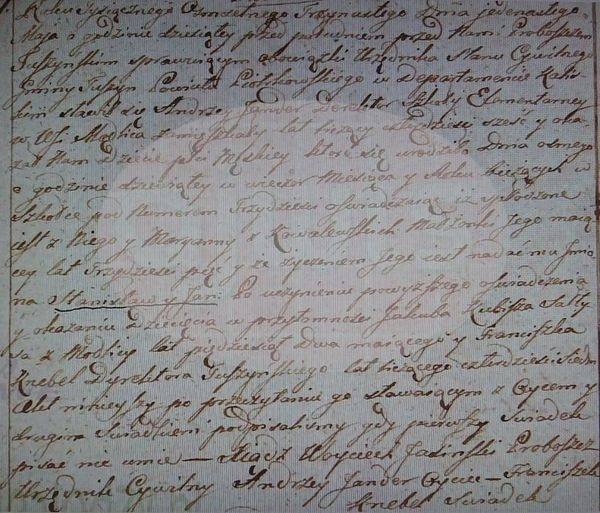 Roku Tysiącznego Osmsetnego Trzynastego Dnia jedenastego
Maja o godzinie dziesiątey przed południem przed Nami Proboszczem
Tuszynskim sprawuiącym obowiązki Urzędnika Stanu Cywilnego
Gminy Tuszyn Powiatu Piotrkowskiego w Departamencie Kalis
kim stawił się Andrzey Jander Derektor Szkoły Elementarney
w Wsi Modlica zamieszkały lat liczący czterdzieści sześć y oka
zał Nam Dziecie płci Męskiey które się urodziło Dnia osmego
o godzinie dziewiątey w wieczor Miesiąca y Roku bieżących w
Szkolce pod Numerem Trzydzieści oswiadczaiąc iż spłodzone
iest z Niego y Maryanny z Kowalewskich Małżonki Jego maią
cey lat Trzydzieści pięć y że życzeniem Jego iest nadać mu Imio
na Stanisław y Jan. Po uczynieniu powyższego oświadczenia
y okazaniu Dziecięcia w przytomności Jakuba Kubisza Sołty
sa z Modlicy lat pięćdziesiąt Dwa maiącego y Franciszka
Knebel Dyrektora Tuszynskiego lat liczącego czterdzieści siedm
Akt ninieyszy po przeczytaniu go stawaiącym z Oycem y
drugim Swiadkiem podpisaliśmy gdy pierwszy Swiadek
pisać nie umie — Xiądz Woyciech Jasinski Proboszcz
Urzędnik Cywilny Andrzey Jander Oyciec — Franciszek
Knebel Swiadek